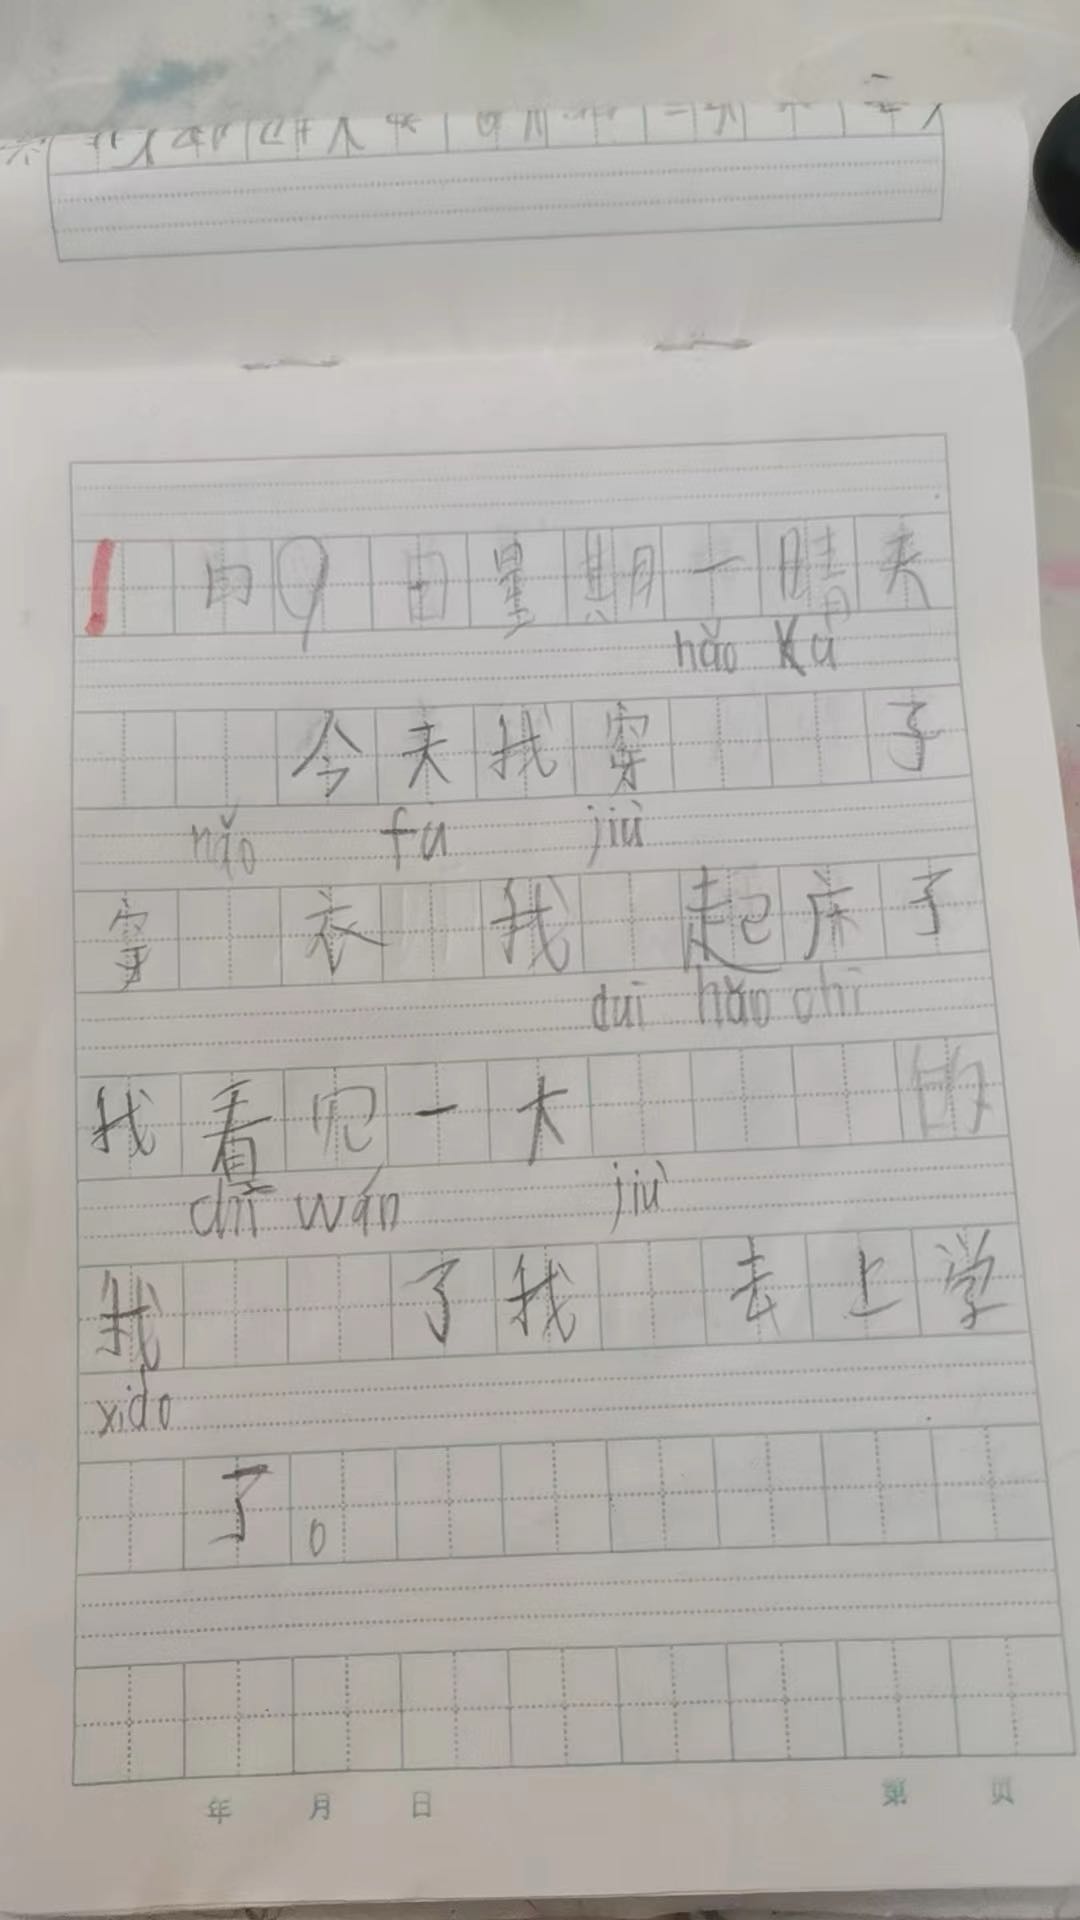 1 月9日星期一晴天
hǎo Kù
今天我穿 了
hǎo fu jiù
穿 衣 我 起床了
dui hǎo chī
我看见一大 的
chī wán jiù
我 了我 去上学
xiào
了。
年 月 日 第 页